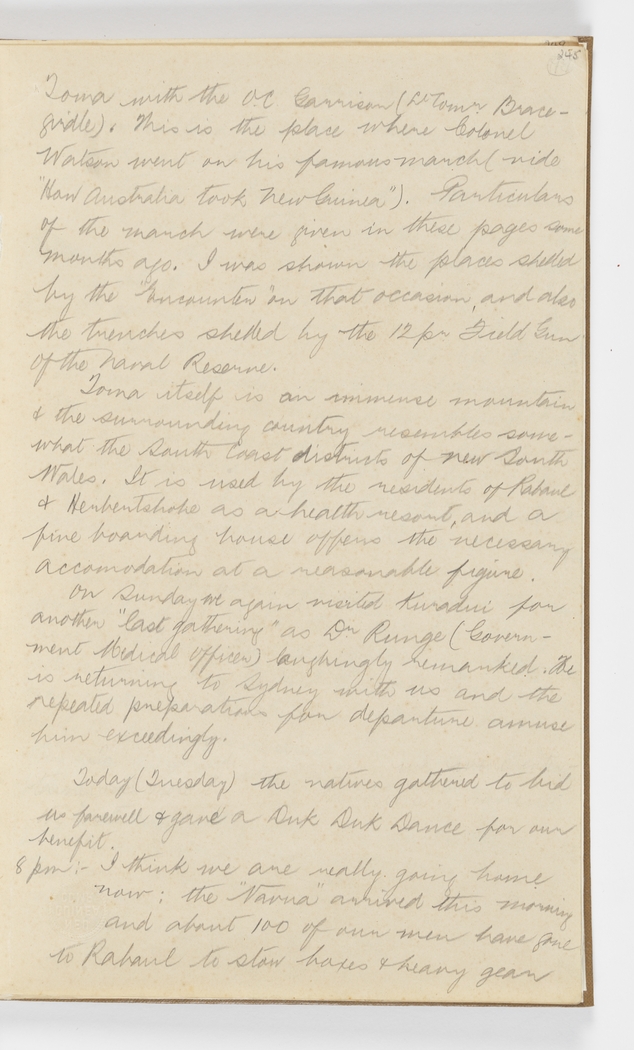 245
Toma with the O.C. Garrison (Lt Comr Brace-
girdle). This is the place where Colonel
Watson went on his famous march (vide
"How Australia took New Guinea"). Particulars
of the march were given in these pages some
months ago. I was shown the places shelled
by the "Encounter" on that occasion, and also
the trenches shelled by the 12 pr Field Gun
of the Naval Reserve.
Toma itself is an immense mountain
& the surrounding country resembles some-
what the South Coast districts of New South
Wales. It is used by the residents of Rabaul
& Herbertshohe as a health resort, and a
fine boarding house offers the necessary
accomodation at a reasonable figure.
On Sunday we again visited Kuradui for
another "last gathering" as Dr Runge (Govern-
ment Medical Officer) laughingly remarked. He
is returning to Sydney with us and the
repeated preparations for departure amuse
him exceedingly.
Today (Tuesday) the natives gathered to bid
us farewell & gave a Duk Duk Dance for our
benefit.
8 pm:- I think we are really going home
now; the "Navua" arrived this morning
and about 100 of our men have gone
to Rabaul to stow boxes & heavy gear